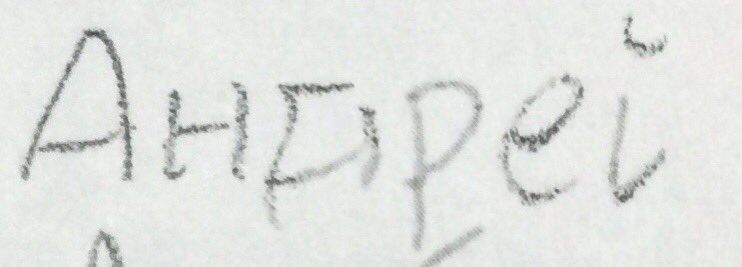 Андрей